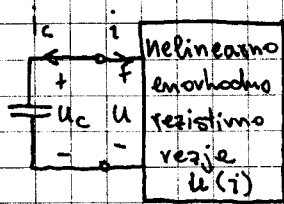 i c i
+ +
u c u
- -
nelinearno
enovhodno
rezistivno
vezje
u(i)